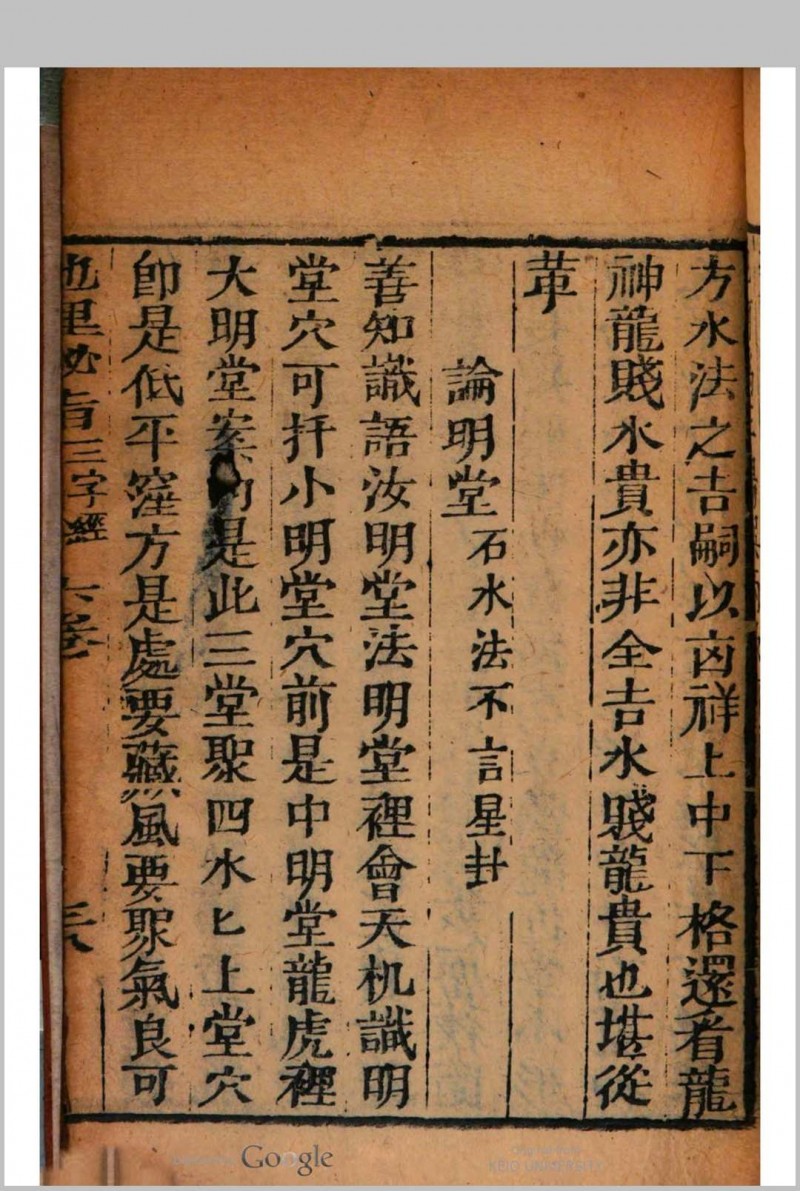 方水法之吉嗣以卤祥上中下格還看龍
神龍賤水貴亦非全吉水賤龍貴也堪從
葦
論明堂 石水法不言星卦
善知識語汝明堂法明堂裡會天机識明
堂穴可扦小明堂穴前是中明堂龍虎裡
大明堂案是此三堂聚四水匕上堂穴
卽是低平窪方是處要藏風要聚氣良可
地里必旨三字經 六卷
Google
KEIO UNIVERSITY